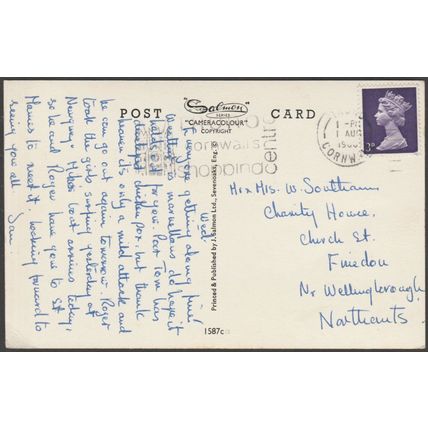 POST
Salmon
SERIES
"CAMERACOLOUR"
COPYRIGHT
CARD
Wed.
Everyone getting along fine!
Weather is marvellous do hope it
for you. Poor Tom has
developed chicken pox, but thank
heavens it's only a mild attack and
he can go out again tomorrow. Roger
took the girls surfing yesterday at
Newquay. Hilda's boat arrives today,
so he and Roger have gone to St
Mawes to meet it. Looking forward to
seeing you all. Jan.
Printed & Published by J. Salmon Ltd., Sevenoaks, Eng. ©
1587c
Cornwall's
shopping
centre
1 - PM
1 AUG
CORNWALL
3D
Mr & Mrs. W. Southam,
Charity House,
Church St.
Finedon
Nr Wellingborough,
Northants.